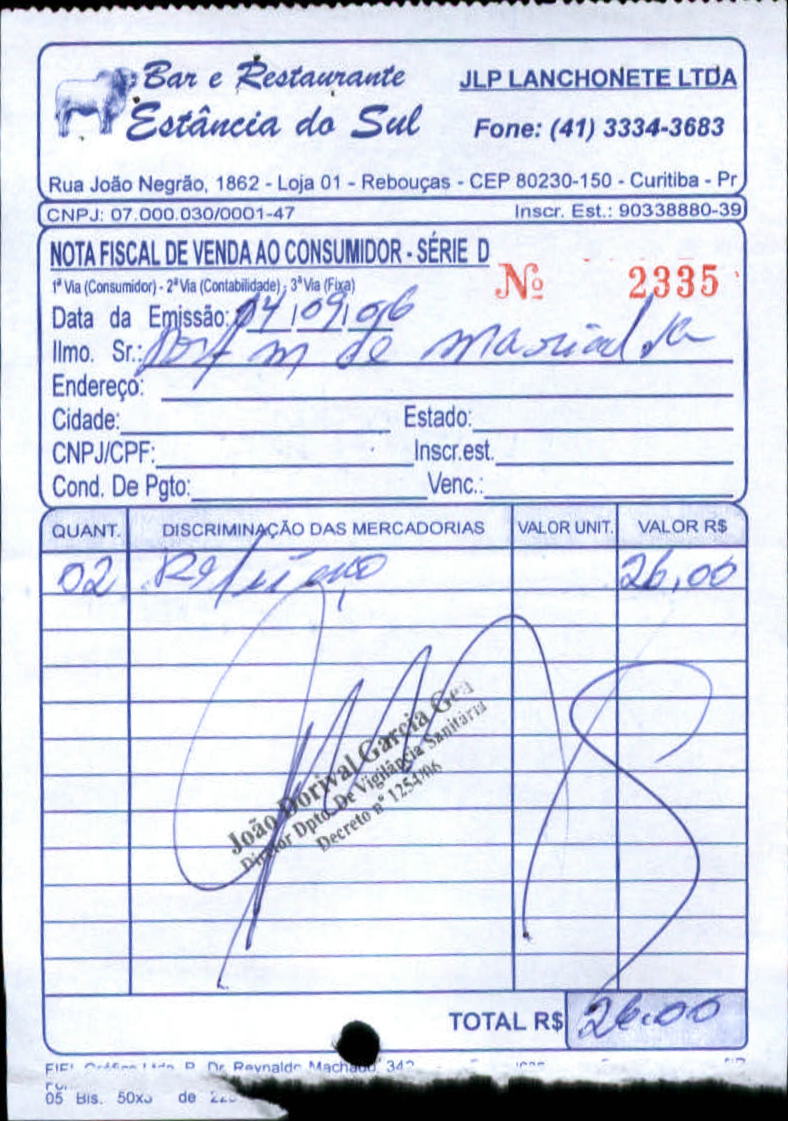 Bar e Restaurante
Estância do Sul
JLP LANCHONETE LTDA
Fone: (41) 3334-3683
Rua João Negrão, 1862 - Loja 01 - Rebouças - CEP 80230-150 - Curitiba - Pr
CNPJ: 07.000.030/0001-47 Inscr. Est.: 90338880-39
NOTA FISCAL DE VENDA AO CONSUMIDOR - SÉRIE D
1ª Via (Consumidor) - 2ª Via (Contabilidade) - 3ª Via (Fixa)
Nº 2335
Data da Emissão: 04/09/06
Ilmo. Sr.: m de
Endereço:
Cidade: Estado:
CNPJ/CPF: Inscr.est.
Cond. De Pgto: Venc.:
QUANT. DISCRIMINAÇÃO DAS MERCADORIAS VALOR UNIT. VALOR R$
02 Refeição 26,00
João Dorival Garcia
Diretor Dpto. De Vigilância Sanitária
Decreto nº 1254/06
TOTAL R$ 26.00
R. Dr. Reynaldo Machado, 342
05 Bls. 50x3 de